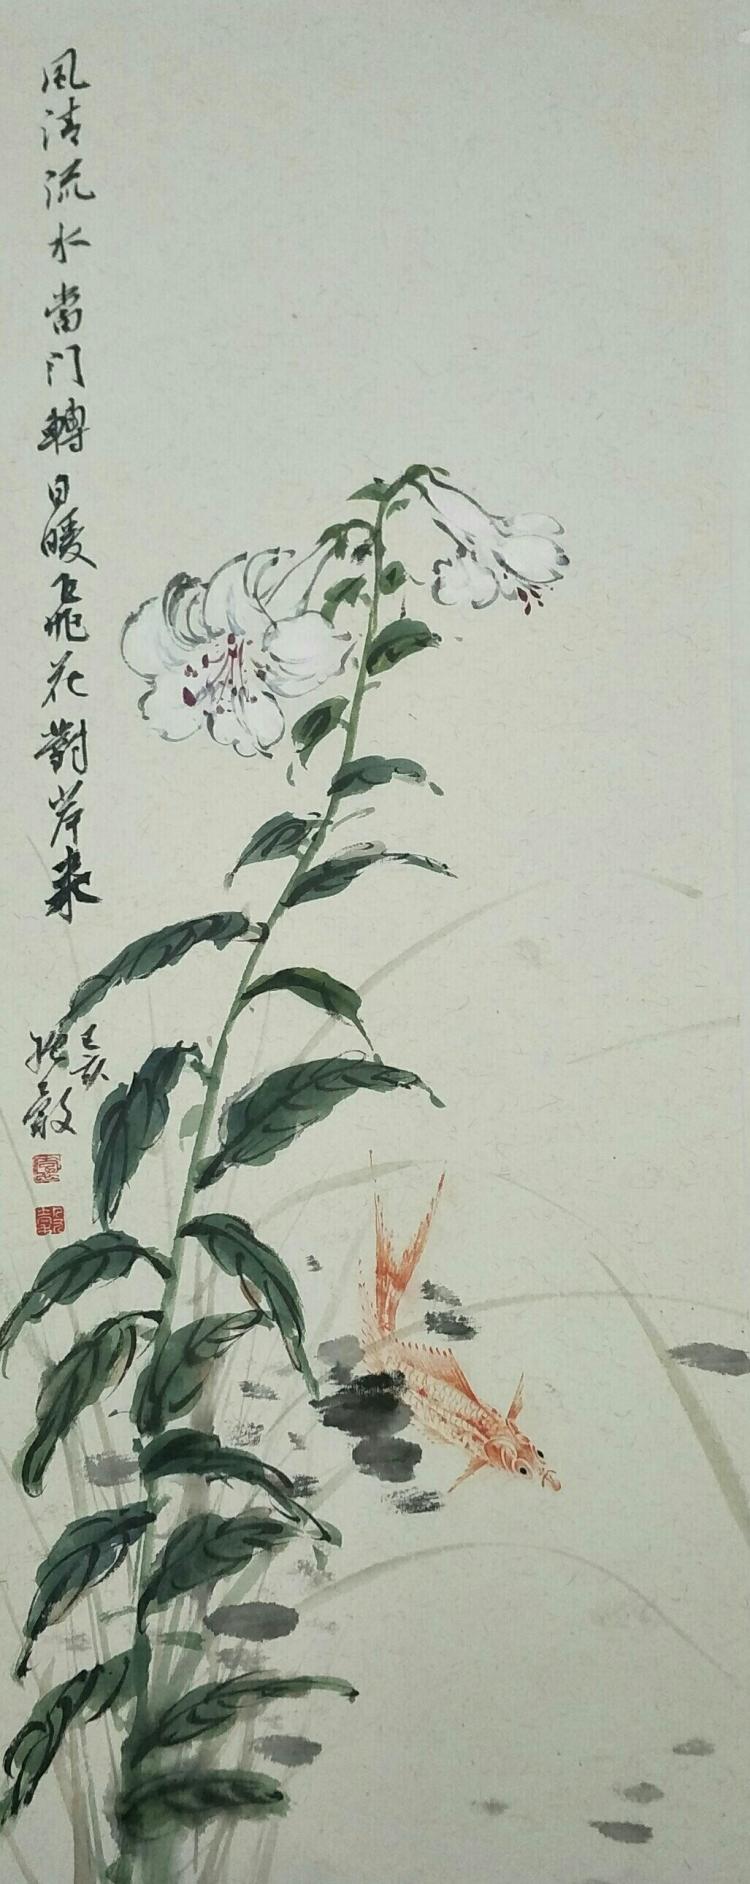 風清流水當门轉日暖飛花對岸來
己亥